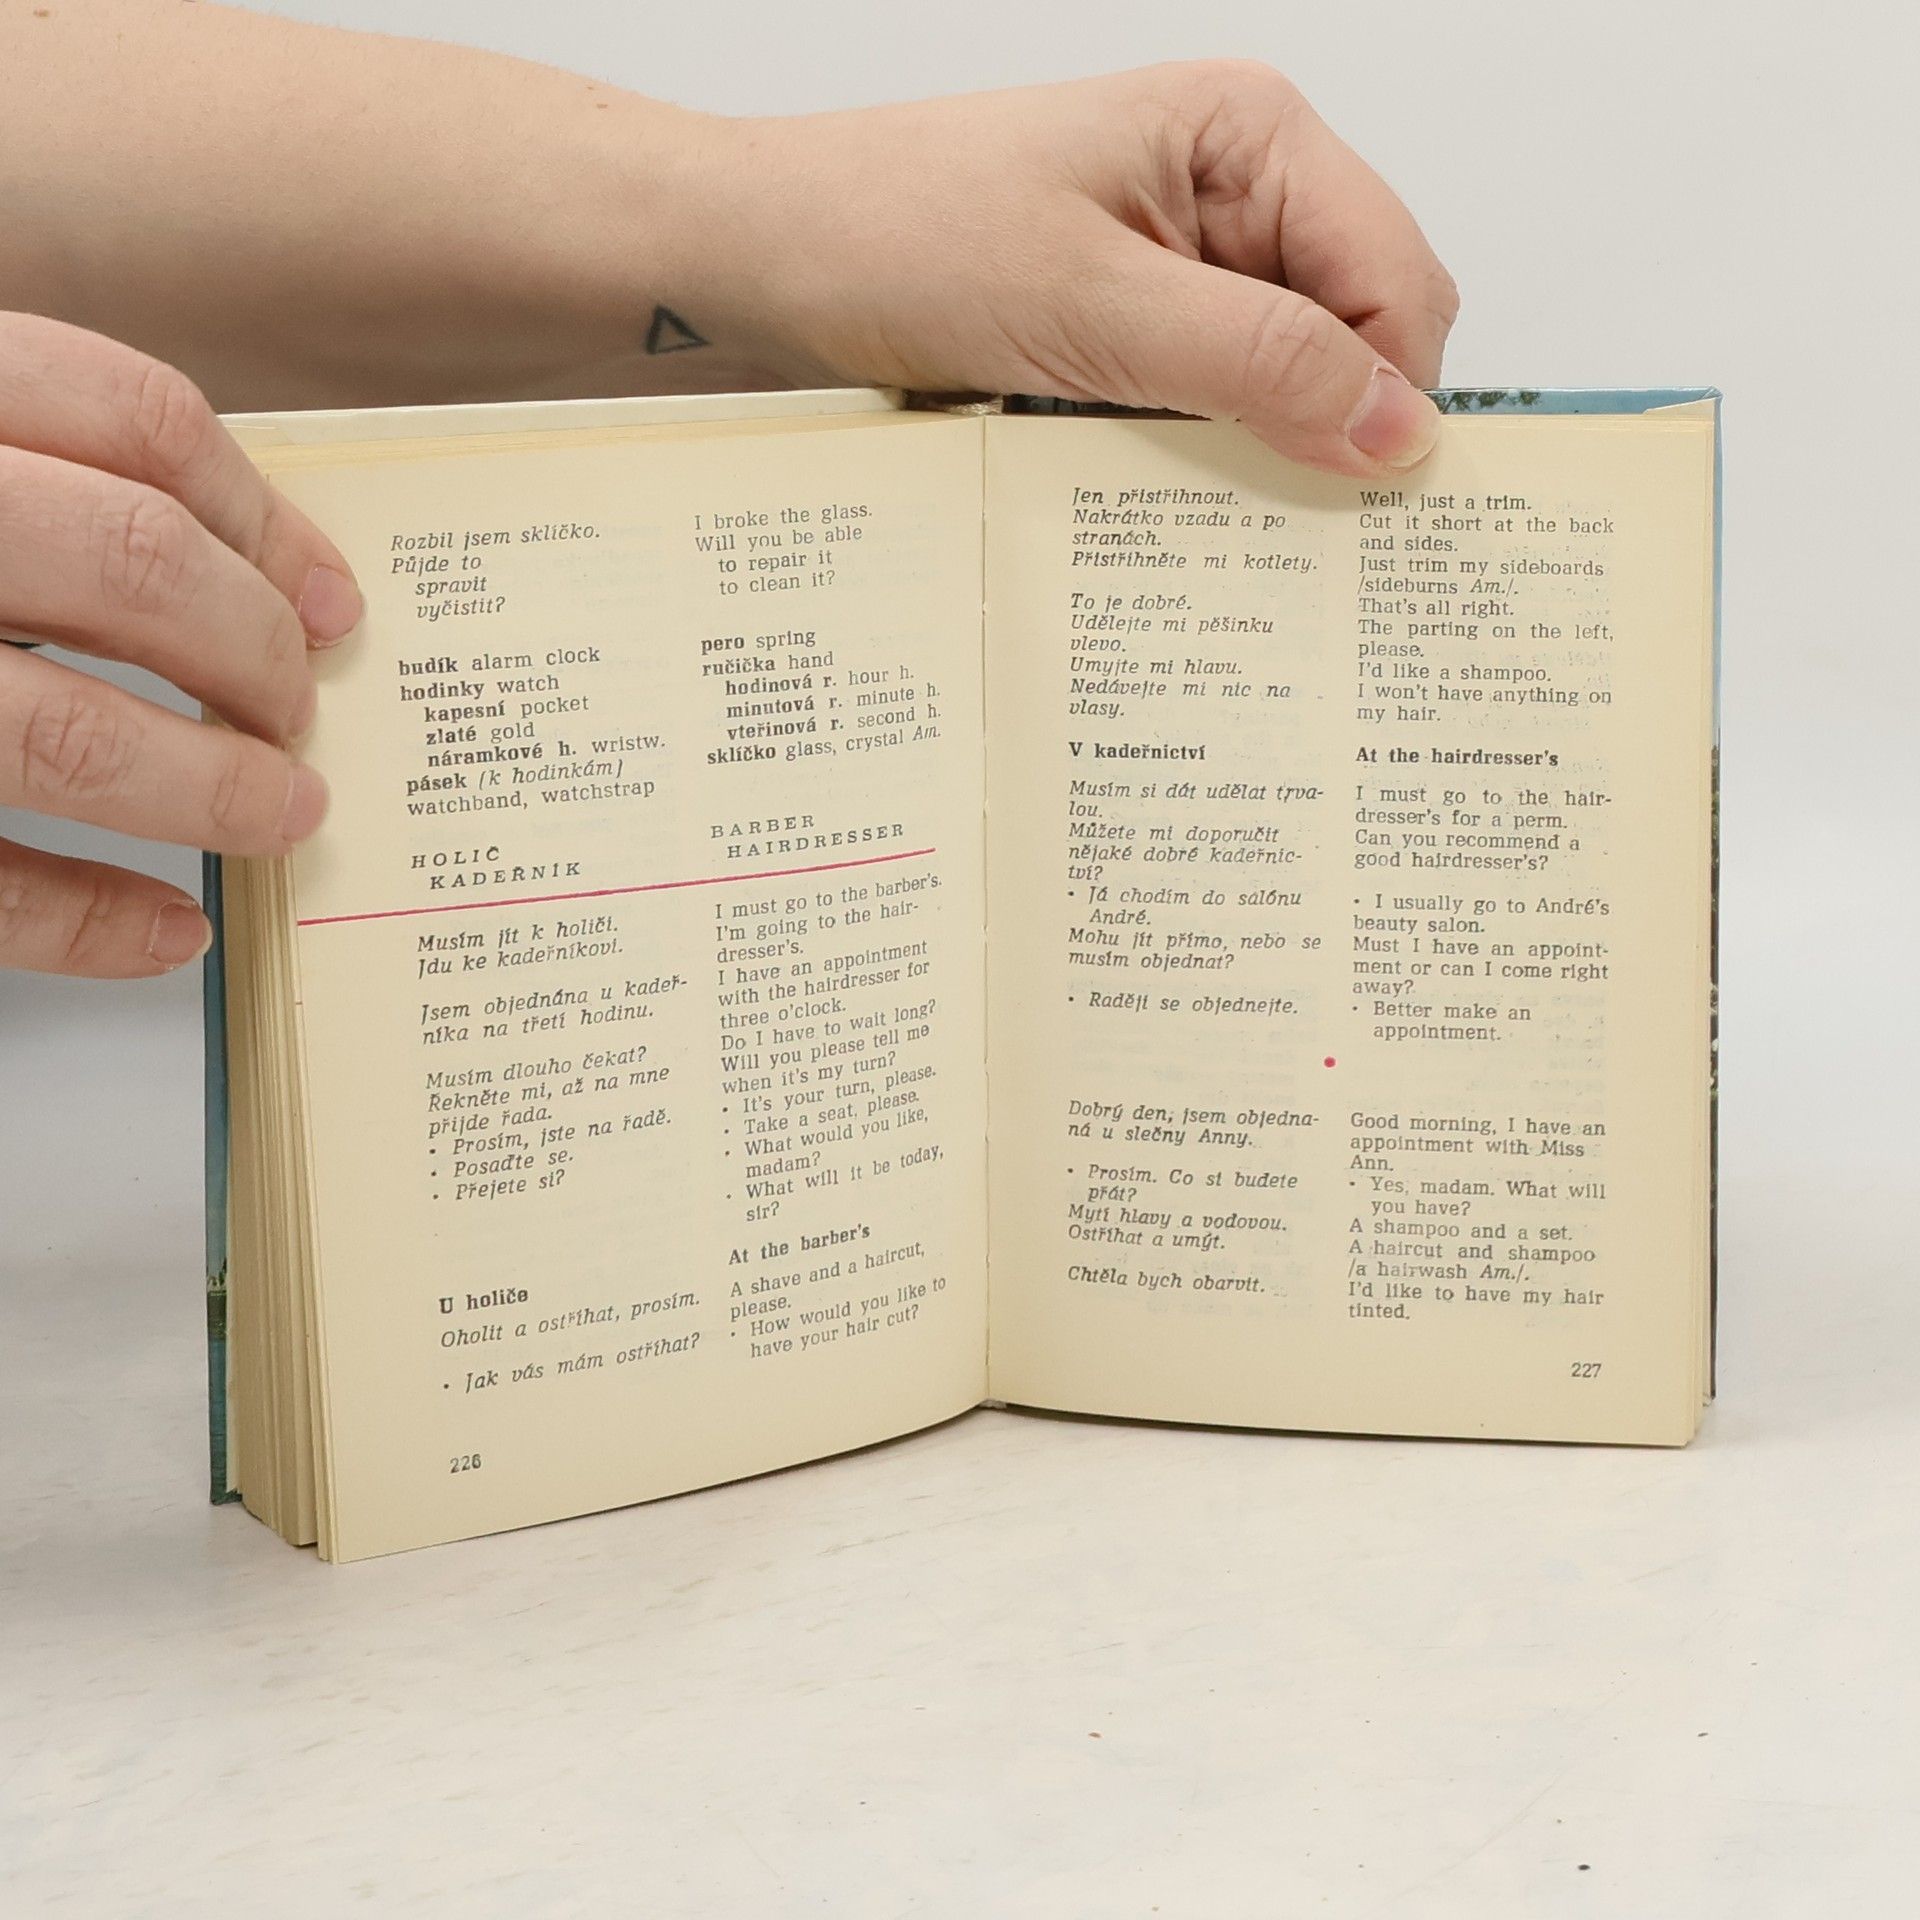 Rozbil jsem sklíčko.
Půjde to
spravit
vyčistit?
budík alarm clock
hodinky watch
kapesní pocket
zlaté gold
náramkové h. wristw.
pásek (k hodinkám)
watchband, watchstrap
HOLIČ
KADEŘNÍK
Musím jít k holiči.
Jdu ke kadeřníkovi.
Jsem objednána u kadeř-
níka na třetí hodinu.
Musím dlouho čekat?
Řekněte mi, až na mne
přijde řada.
• Prosím, jste na řadě.
• Posaďte se.
• Přejete si?
U holiče
Oholit a ostříhat, prosím.
• Jak vás mám ostříhat?
226
I broke the glass.
Will you be able
to repair it
to clean it?
pero spring
ručička hand
hodinová r. hour h.
minutová r. minute h.
vteřinová r. second h.
sklíčko glass, crystal Am.
BARBER
HAIRDRESSER
I must go to the barber's.
I'm going to the hair-
dresser's.
I have an appointment
with the hairdresser for
three o'clock.
Do I have to wait long?
Will you please tell me
when it's my turn?
• It's your turn, please.
• Take a seat, please.
• What would you like,
madam?
• What will it be today,
sir?
At the barber's
A shave and a haircut,
please.
• How would you like to
have your hair cut?
Jen přistřihnout.
Nakrátko vzadu a po
stranách.
Přistřihněte mi kotlety.
To je dobré.
Udělejte mi pěšinku
vlevo.
Umyjte mi hlavu.
Nedávejte mi nic na
vlasy.
V kadeřnictví
Musím si dát udělat trva-
lou.
Můžete mi doporučit
nějaké dobré kadeřnic-
tví?
• Já chodím do salónu
André.
Mohu jít přímo, nebo se
musím objednat?
• Raději se objednejte.
Dobrý den, jsem objedna-
ná u slečny Anny.
• Prosím. Co si budete
přát?
Mytí hlavy a vodovou.
Ostříhat a umýt.
Chtěla bych obarvit.
Well, just a trim.
Cut it short at the back
and sides.
Just trim my sideboards
/sideburns Am./.
That's all right.
The parting on the left,
please.
I'd like a shampoo.
I won't have anything on
my hair.
At the hairdresser's
I must go to the hair-
dresser's for a perm.
Can you recommend a
good hairdresser's?
• I usually go to André's
beauty salon.
Must I have an appoint-
ment or can I come right
away?
• Better make an
appointment.
Good morning, I have an
appointment with Miss
Ann.
• Yes, madam. What will
you have?
A shampoo and a set.
A haircut and shampoo
/a hairwash Am./.
I'd like to have my hair
tinted.
227